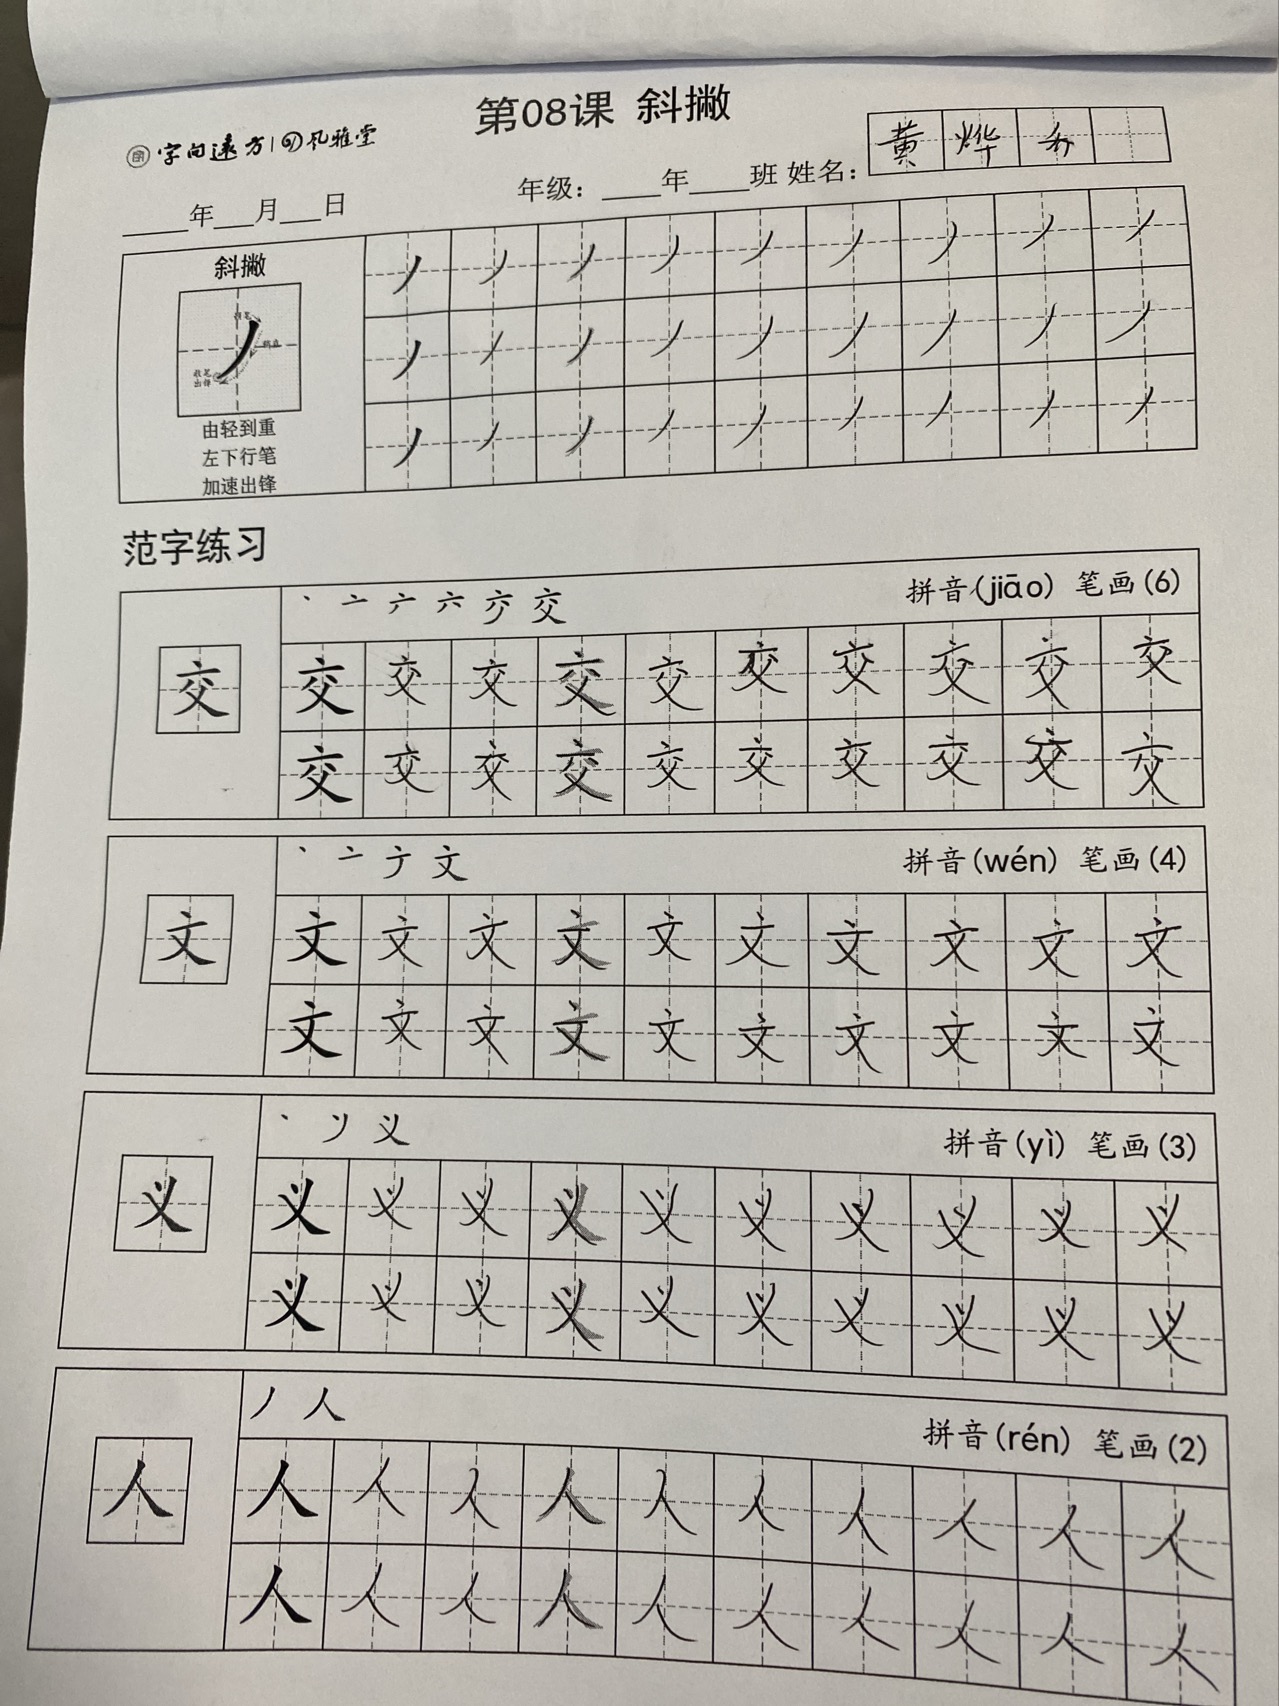 第08课 斜撇
字向远方 风雅堂
黄 烨
____年___月___日 年级：____年____班 姓名：
斜撇
由轻到重
左下行笔
加速出锋
丿 丿 丿 丿 丿 丿 丿 丿 丿
丿 丿 丿 丿 丿 丿 丿 丿 丿
丿 丿 丿 丿 丿 丿 丿 丿 丿
范字练习
丶 亠 六 交 拼音(jiāo) 笔画(6)
交
交 交 交 交 交 交 交 交 交 交
交 交 交 交 交 交 交 交 交 交
丶 亠 文 拼音(wén) 笔画(4)
文
文 文 文 文 文 文 文 文 文 文
文 文 文 文 文 文 文 文 文 文
丶 义 拼音(yì) 笔画(3)
义
义 义 义 义 义 义 义 义 义 义
义 义 义 义 义 义 义 义 义 义
丿 人 拼音(rén) 笔画(2)
人
人 人 人 人 人 人 人 人 人 人
人 人 人 人 人 人 人 人 人 人